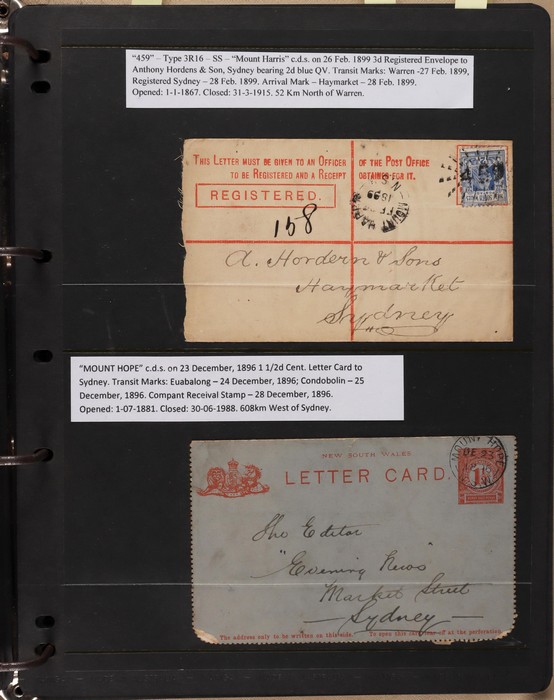 "459" – Type 3R16 – SS – "Mount Harris" c.d.s. on 26 Feb. 1899 3d Registered Envelope to
Anthony Hordens & Son, Sydney bearing 2d blue QV. Transit Marks: Warren -27 Feb. 1899,
Registered Sydney – 28 Feb. 1899. Arrival Mark – Haymarket – 28 Feb. 1899.
Opened: 1-1-1867. Closed: 31-3-1915. 52 Km North of Warren.
THIS LETTER MUST BE GIVEN TO AN OFFICER OF THE POST OFFICE
TO BE REGISTERED AND A RECEIPT OBTAINED FOR IT.
REGISTERED.
158
MOUNT HARRIS
N.S.W
1899
459
A. Hordern & Sons
Haymarket
Sydney
"MOUNT HOPE" c.d.s. on 23 December, 1896 1 1/2d Cent. Letter Card to
Sydney. Transit Marks: Euabalong – 24 December, 1896; Condobolin – 25
December, 1896. Compant Receival Stamp – 28 December, 1896.
Opened: 1-07-1881. Closed: 30-06-1988. 608km West of Sydney.
NEW SOUTH WALES
LETTER CARD.
MOUNT HOPE
DE 23
The Editor
"Evening News"
Market Street
Sydney
The address only to be written on this side. To open this card tear off at the perforation